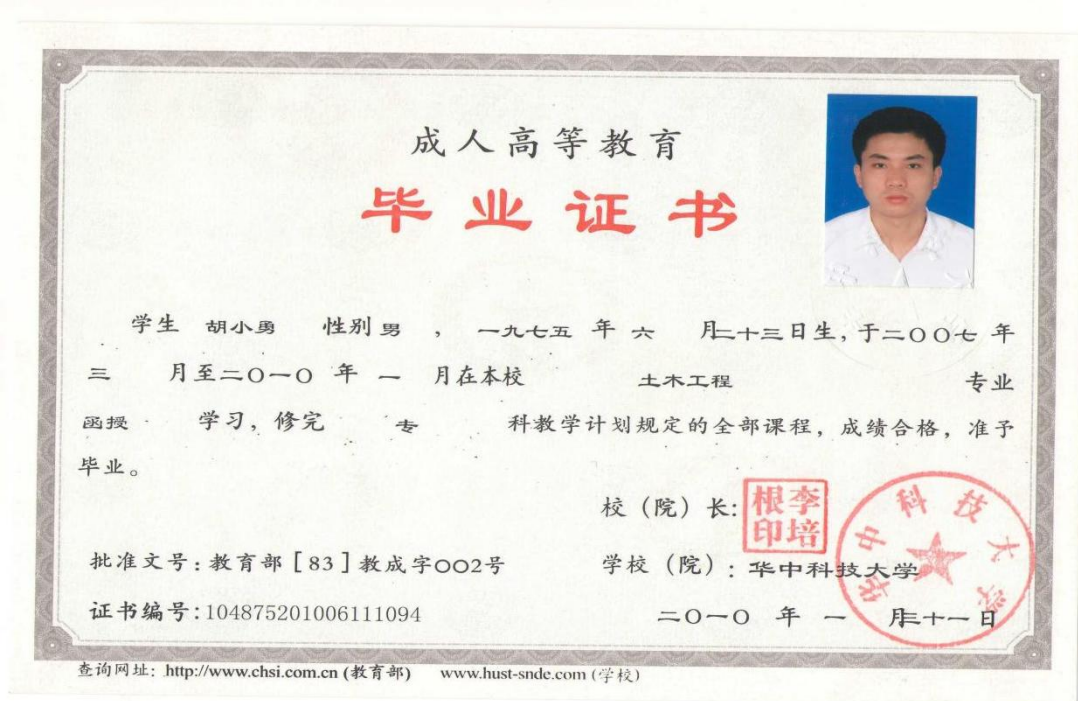 成人高等教育
毕业证书
学生 胡小勇 性别 男 ， 一九七五 年 六 月二十三日生，于二〇〇七 年
三 月至二〇一〇 年 一 月在本校 土木工程 专业
函授 学习，修完 专 科教学计划规定的全部课程，成绩合格，准予
毕业。
校（院）长：
李培根印
批准文号：教育部［83］教成字〇〇2号
学校（院）：华中科技大学
华中科技大学
证书编号：104875201006111094
二〇一〇 年 一 月三十一日
查询网址：http://www.chsi.com.cn (教育部) www.hust-snde.com (学校)